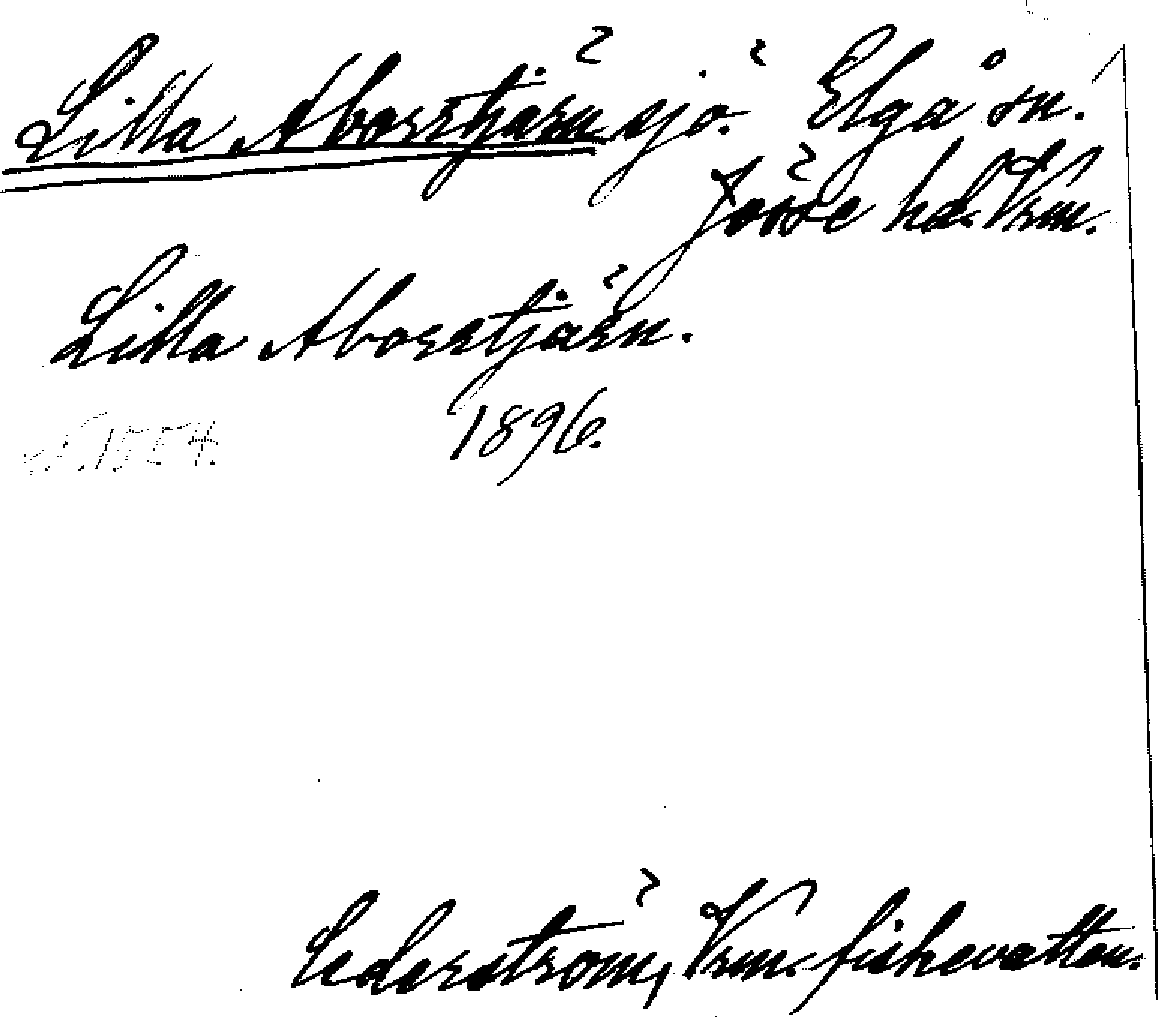 Lilla Aborrtjärn sjö. Elgå sn.
Jösse hd. Vrm.
Lilla Aborrtjärn.
1896.
Cederström, Vrm. fiskevatten.